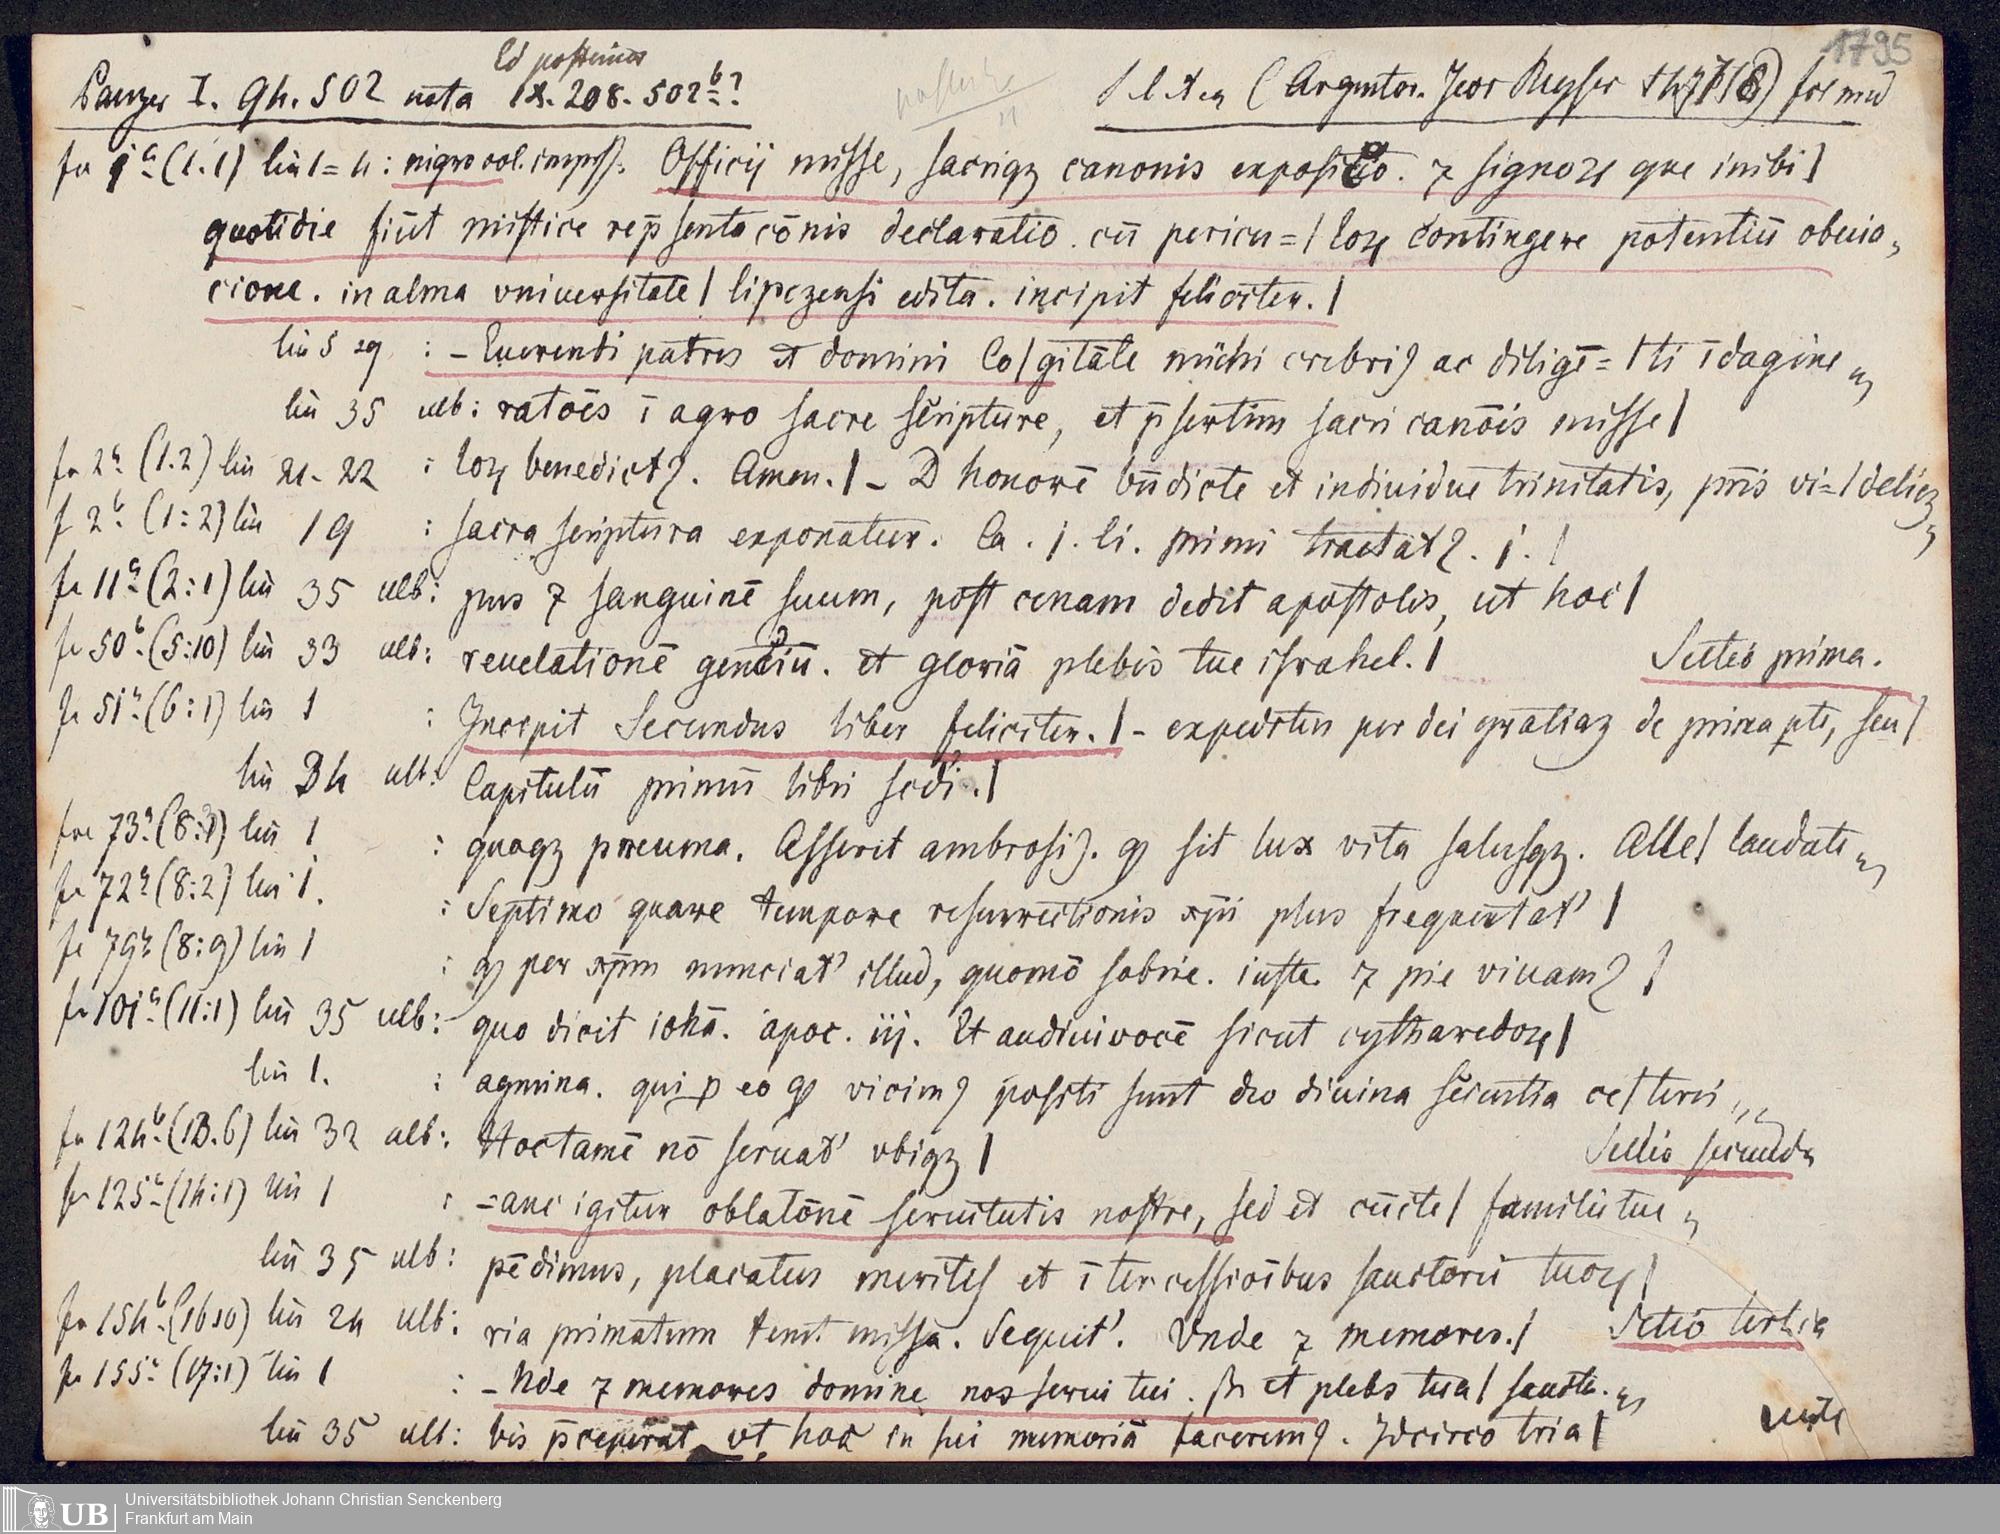 1795
Ed posterior
Panzer I. 94. 502 nota IX. 208. 502b?
s. l. et a. (Argentor. Geor Reyser) fol min
fo 1a (1.1) lin 1=4: nigro col. impress. Officij misse, sacriqz canonis expositio. ⁊ signoꝝ que inibi|
quotidie fiūt mistice rep̄sentacōnis declaratio. cū pericu=| loꝝ contingere potentiū obuia„
cione. in alma vniuersitate| lipczensi edita. incipit feliciter.|
lin 5 sq : – Euerendi patres et domini Co|gitāte michi crebri⁹ ac diligē=|ti īdagine „
lin 35 ult: ratōes ī agro sacre sc̄ripture, et p̄sertim sacri canōis misse|
fo 2a (1.2) lin 21-22 : loꝝ benedict⁹. Amen.| – D honorē bn̄dicte et indiuidue trinitatis, pr̄is vi=|delicz „
f 2b (1:2) lin 19 : sacra scriptura exponatur. Ca. j. li. primi tractat⁹. j. |
fo 11a (2:1) lin 35 ult: pus ⁊ sanguinē suum, post cenam dedit apostolis, ut hoc|
fo 50b (5:10) lin 33 ult: reuelationē gentiū. et gloriā plebis tue israhel.| Sectio prima.
fo 51a (6:1) lin 1 : Incipit Secundus liber feliciter.| – expeditus per dei gratiaz de prima pte, seu|
lin 34 ult: Capitulū primū libri scdi.|
fo 73a (8:3) lin 1 : quaqz pneuma. Asserit ambrosi⁹. ꝙ sit lux vita salusqz. Alle| laudate „
fo 72a (8:2) lin 1. : Septimo quare tempore resurrectionis xp̄i plus frequentat'|
fo 79a (8:9) lin 1 : ꝙ per xp̄m nunciat' illud, quomō sobrie. iuste. ⁊ pie viuam⁹|
fo 101a (11:1) lin 35 ult: quo dicit iohā. apoc. iij. Et audiui vocē sicut cytharedoꝝ|
lin 1. : agmina. qui ꝑ eo ꝙ vicim⁹ positi sunt deo diuina sc̄ientia ce|teri „
fo 124b (13.6) lin 32 ult: Hoc tamē nō seruat' vbiqz| Sectio secunda
fo 125a (14:1) lin 1 : – anc igitur oblatōnē seruitutis nostre, sed et cūcte| familie tue „
lin 35 ult: pēdimus, placatus meritis et ī tercessiōibus sanctorū tuoꝝ|
fo 154b (16 10) lin 24 ult: ria primatum tenet missa. Sequit'. Vnde ⁊ memores.| Sectio tertia
fo 155a (17:1) lin 1 : – Nde ⁊ memores domine nos serui tui. sz et plebs tua| sancta. „
lin 35 ult: bis p̄ceperat ut hoc in sui memoriā facerem⁹. Idcirco tria|
verte
UB
Universitätsbibliothek Johann Christian Senckenberg
Frankfurt am Main